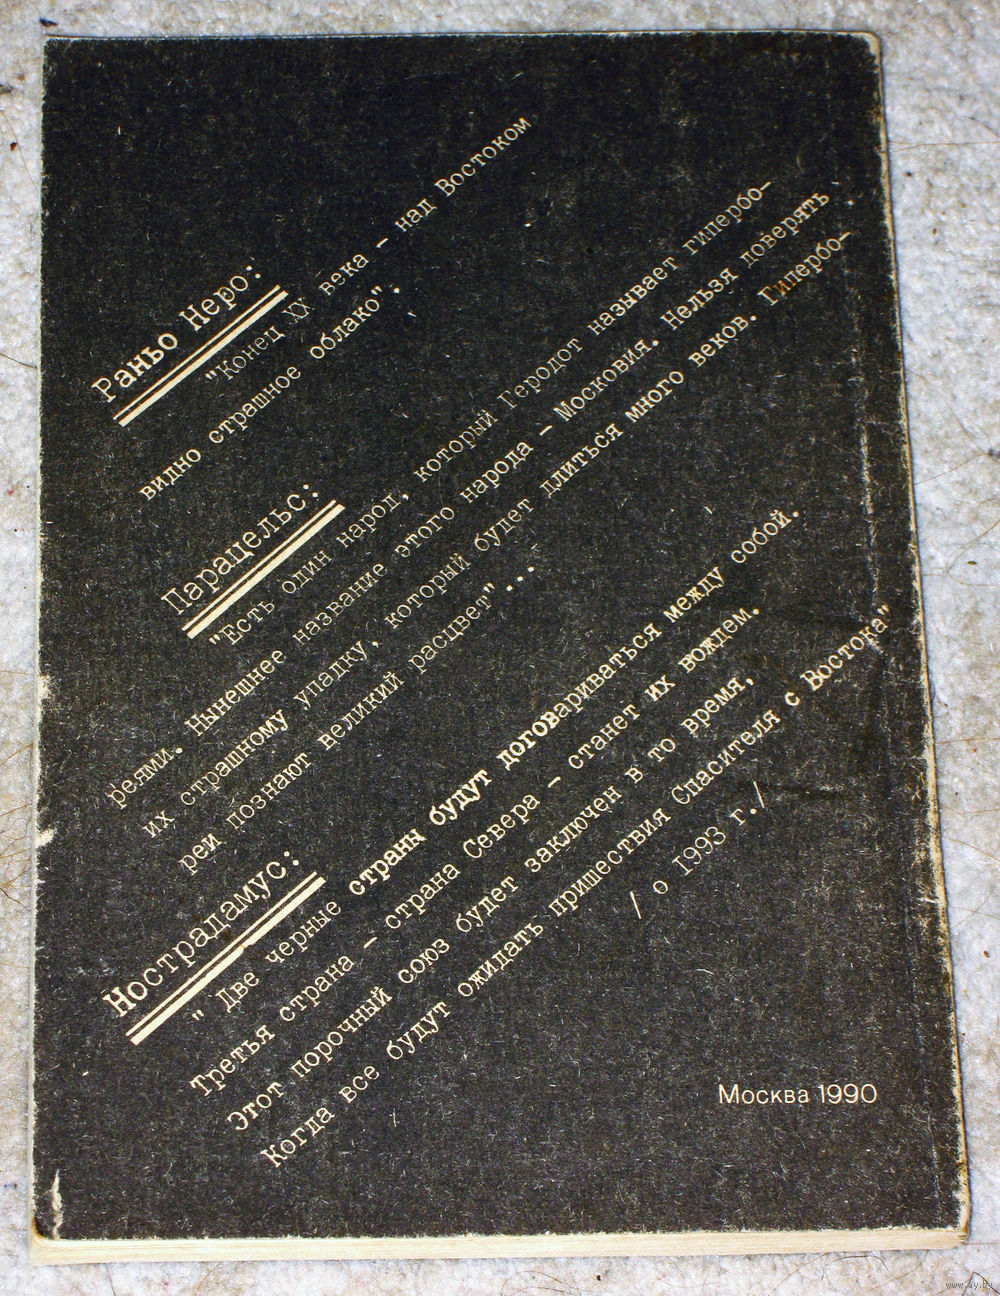 Раньо Неро:
"Конец XX века – над Востоком
видно страшное облако".
Парацельс:
"Есть один народ, который Геродот называет гипербо-
реями. Нынешнее название этого народа – Московия. Нельзя доверять
их страшному упадку, который будет длиться много веков. Гипербо-
реи познают великий расцвет"...
Нострадамус:
" Две черные страны будут договариваться между собой.
Третья страна – страна Севера – станет их вождем.
Этот порочный союз будет заключен в то время,
Когда все будут ожидать пришествия Спасителя с Востока"
/ о 1993 г./
Москва 1990
www.ay.by